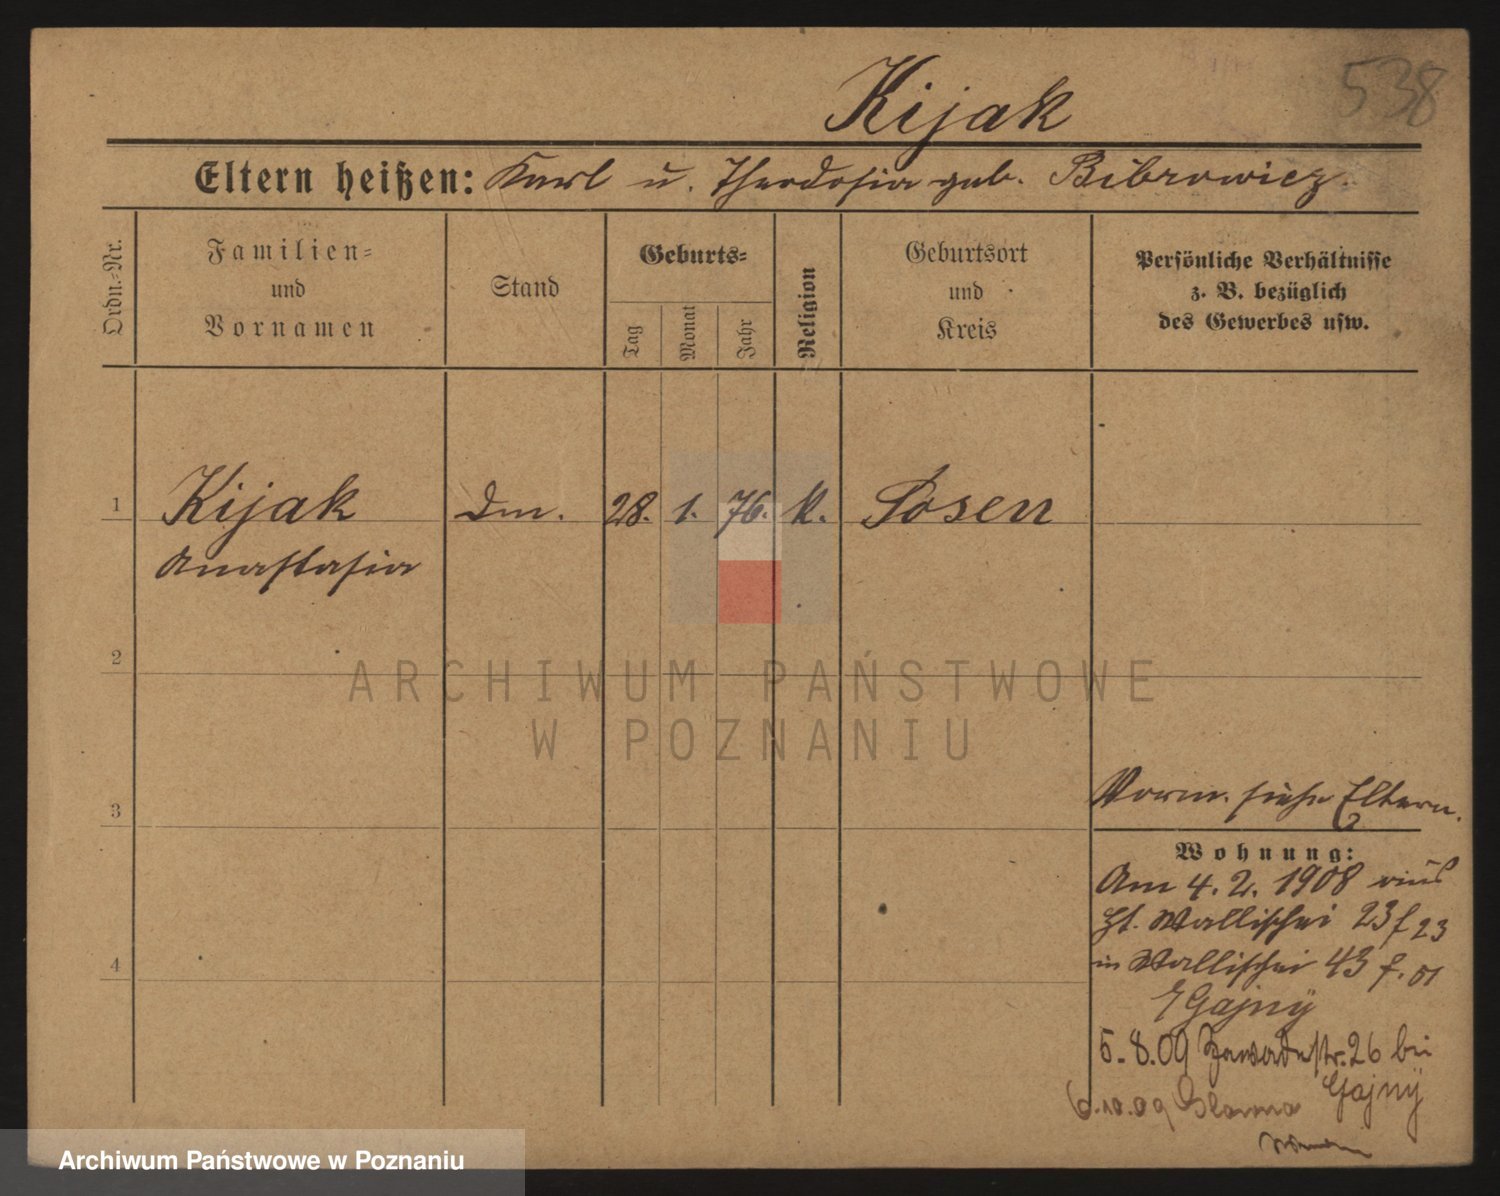 538
Kijak
Eltern heißen: Karl u. Theodosia geb. Bibrowicz.
Ordn.-Nr.
Familien- und Vornamen
Stand
Geburts-
Tag
Monat
Jahr
Religion
Geburtsort und Kreis
Persönliche Verhältnisse
z. B. bezüglich
des Gewerbes usw.
1 Kijak Dm. 28. 1. 76. K. Posen
Anastasia
2
ARCHIWUM PAŃSTWOWE
W POZNANIU
3
Vorm. siehe Eltern.
Wohnung:
Am 4. 2. 1908
Wallischei 23 f 23
in Wallischei 43 f. 01
Gajny
5. 8. 09 Zawadestr. 26 bei
Gajny
6.10.09
4
Archiwum Państwowe w Poznaniu